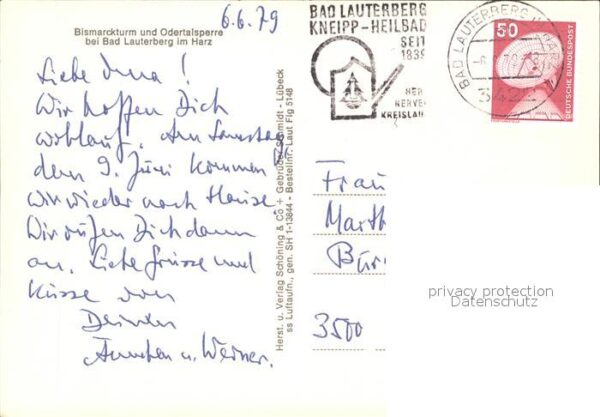 6.6.79
Bismarckturm und Odertalsperre
bei Bad Lauterberg im Harz
Wir hoffen Dich
wohlauf. Am Samstag,
dem 9. Juni kommen
wir wieder nach Hause
Wir rufen Dich dann
an. Liebe Grüsse und
Küsse von
Deinen
u. Werner.
Herst. u. Verlag Schöning & Co + Gebrüder Schmidt - Lübeck
ss Luftaufn., gen. SH 1-13844 - Bestellnr. Laut Fig 5148
BAD LAUTERBERG
KNEIPP-HEILBAD
SEIT
1839
HER
NERVE
KREISLAU
BAD LAUTERBERG
3422
50
DEUTSCHE BUNDESPOST
Frau
Marth
3500
privacy protection
Datenschutz